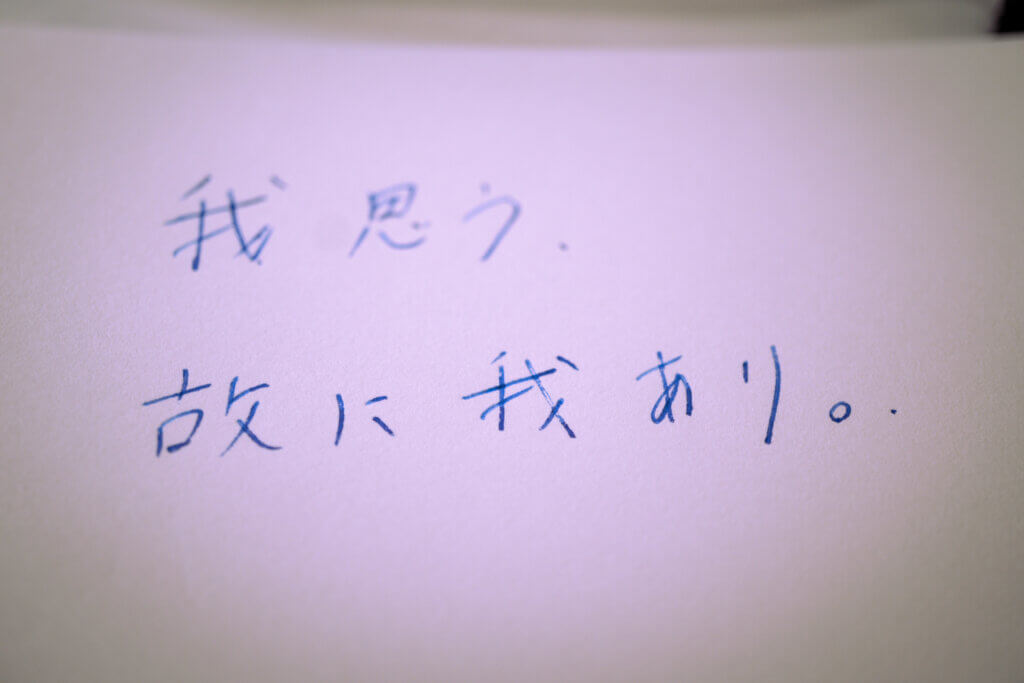 我思う.
故に我あり。.